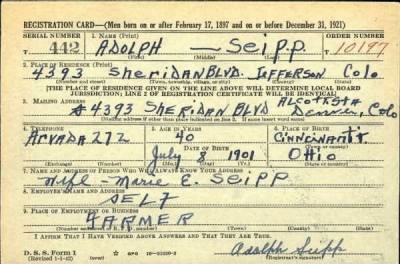 REGISTRATION CARD—(Men born on or after February 17, 1897 and on or before December 31, 1921)
SERIAL NUMBER 1. NAME (Print) ORDER NUMBER
T 442 ADOLPH — SEIPP. 10197
(First) (Middle) (Last)
2. PLACE OF RESIDENCE (Print)
4393 SheriDAN BLVD. JEFFERSON Colo
(Number and street) (Town, township, village, or city) (County) (State)
[THE PLACE OF RESIDENCE GIVEN ON THE LINE ABOVE WILL DETERMINE LOCAL BOARD
JURISDICTION; LINE 2 OF REGISTRATION CERTIFICATE WILL BE IDENTICAL]
3. MAILING ADDRESS
4393 SHERIDAN BLVD ALCOTT STA Denver, Colo
[Mailing address if other than place indicated on line 2. If same insert word same]
4. TELEPHONE 5. AGE IN YEARS 6. PLACE OF BIRTH
ARVADA 272 40 CINNCINNATI
DATE OF BIRTH (Town or county)
July 8 1901 Ohio
(Exchange) (Number) (Mo.) (Day) (Yr.) (State or country)
7. NAME AND ADDRESS OF PERSON WHO WILL ALWAYS KNOW YOUR ADDRESS
Wife - Marie E. SEIPP
8. EMPLOYER'S NAME AND ADDRESS
SELF
9. PLACE OF EMPLOYMENT OR BUSINESS
FARMER
(Number and street or R. F. D. number) (Town) (County) (State)
I AFFIRM THAT I HAVE VERIFIED ABOVE ANSWERS AND THAT THEY ARE TRUE.
D. S. S. Form 1
(Revised 1-1-42) (over)
Adolph Seipp
(Registrant's signature)